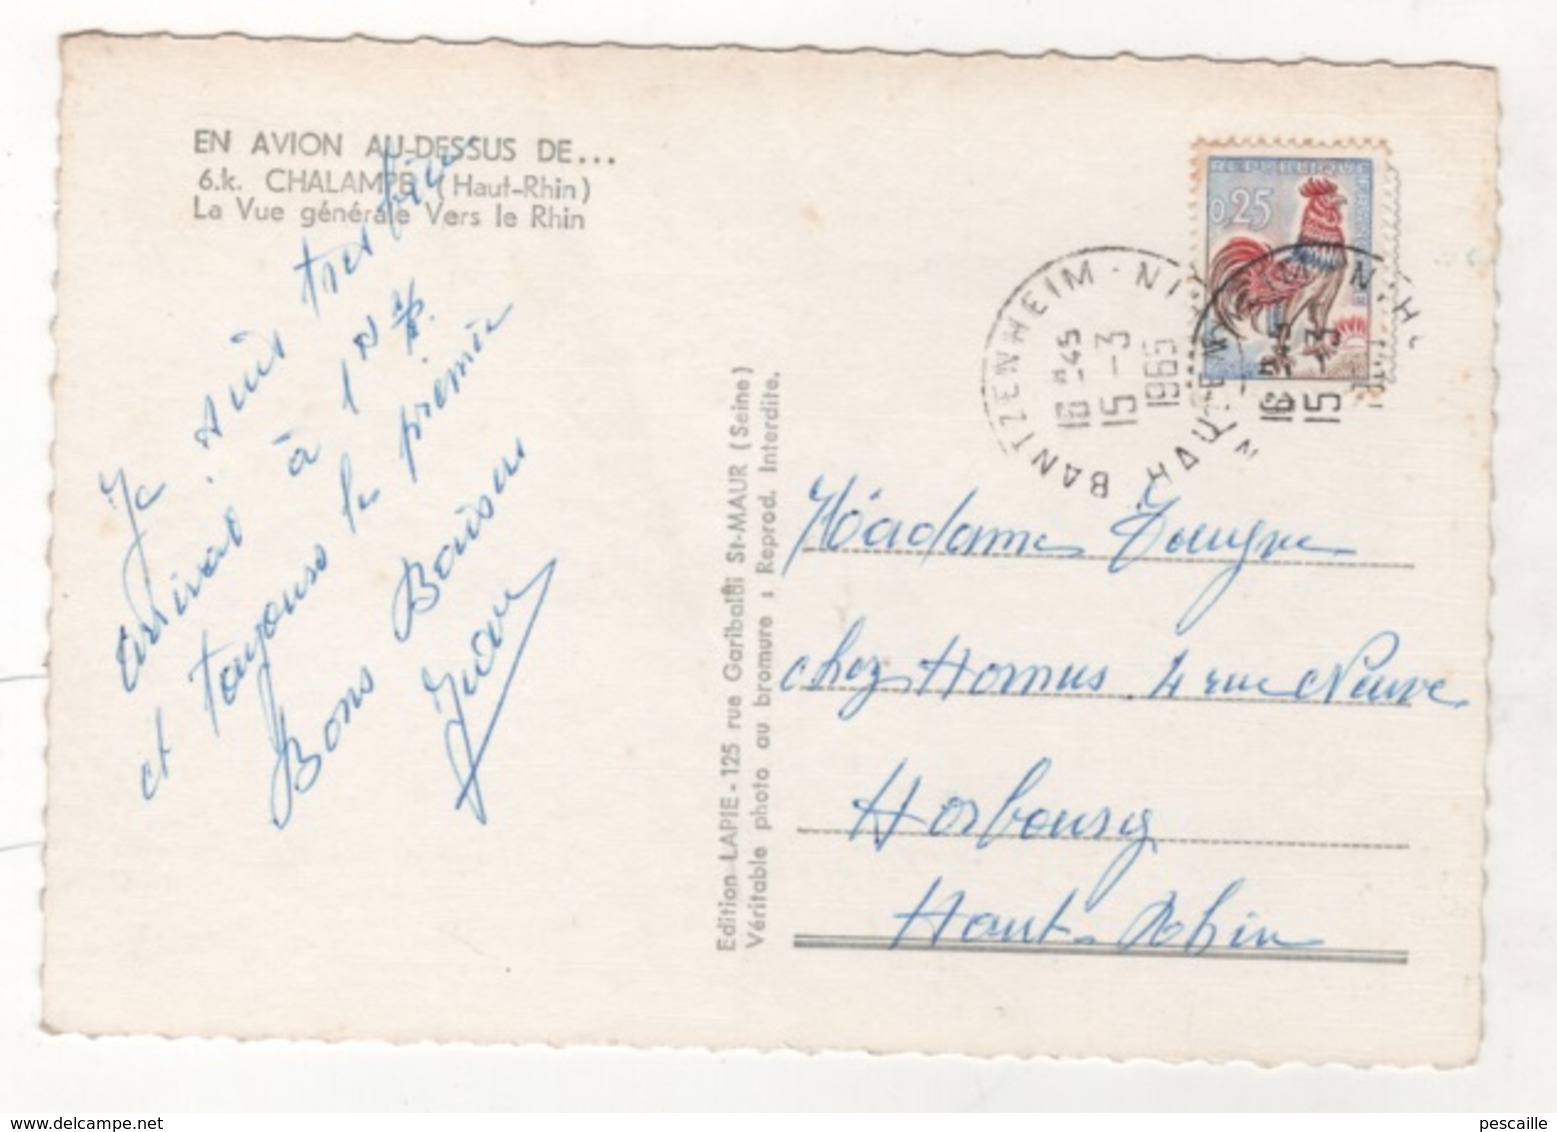 EN AVION AU-DESSUS DE...
6.k. CHALAMPE (Haut-Rhin)
La Vue générale Vers le Rhin
Je suis tres bien
arrivée à 1
et toujours la première
Bons Baisers
Edition LAPIE - 125 rue Garibaldi St-MAUR (Seine)
Véritable photo au bromure : Reprod. Interdite.
REPUBLIQUE FRANCAISE
0,25
BANTZENHEIM
16 H 45
15 - 3
1965
HAUT
16 H 45
15 - 3
Madame
chez Homus 4 rue Neuve
Horbourg
Haut-Rhin
pescaille
www.delcampe.net